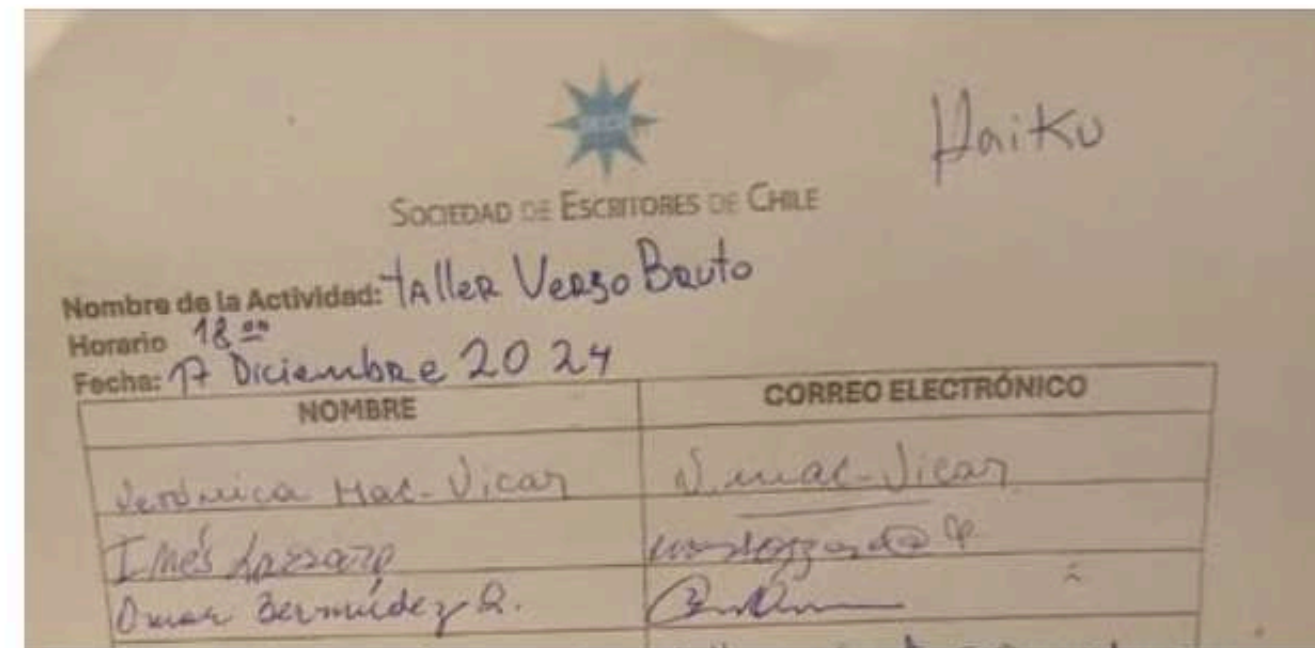 SECH
Haiku
SOCIEDAD DE ESCRITORES DE CHILE
Nombre de la Actividad: Taller Verso Bruto
Horario 18 00
Fecha: 17 Diciembre 2024
NOMBRE CORREO ELECTRÓNICO
Verónica Mac-Vicar V. mac-Vicar
Inés
Omar Bermúdez R.